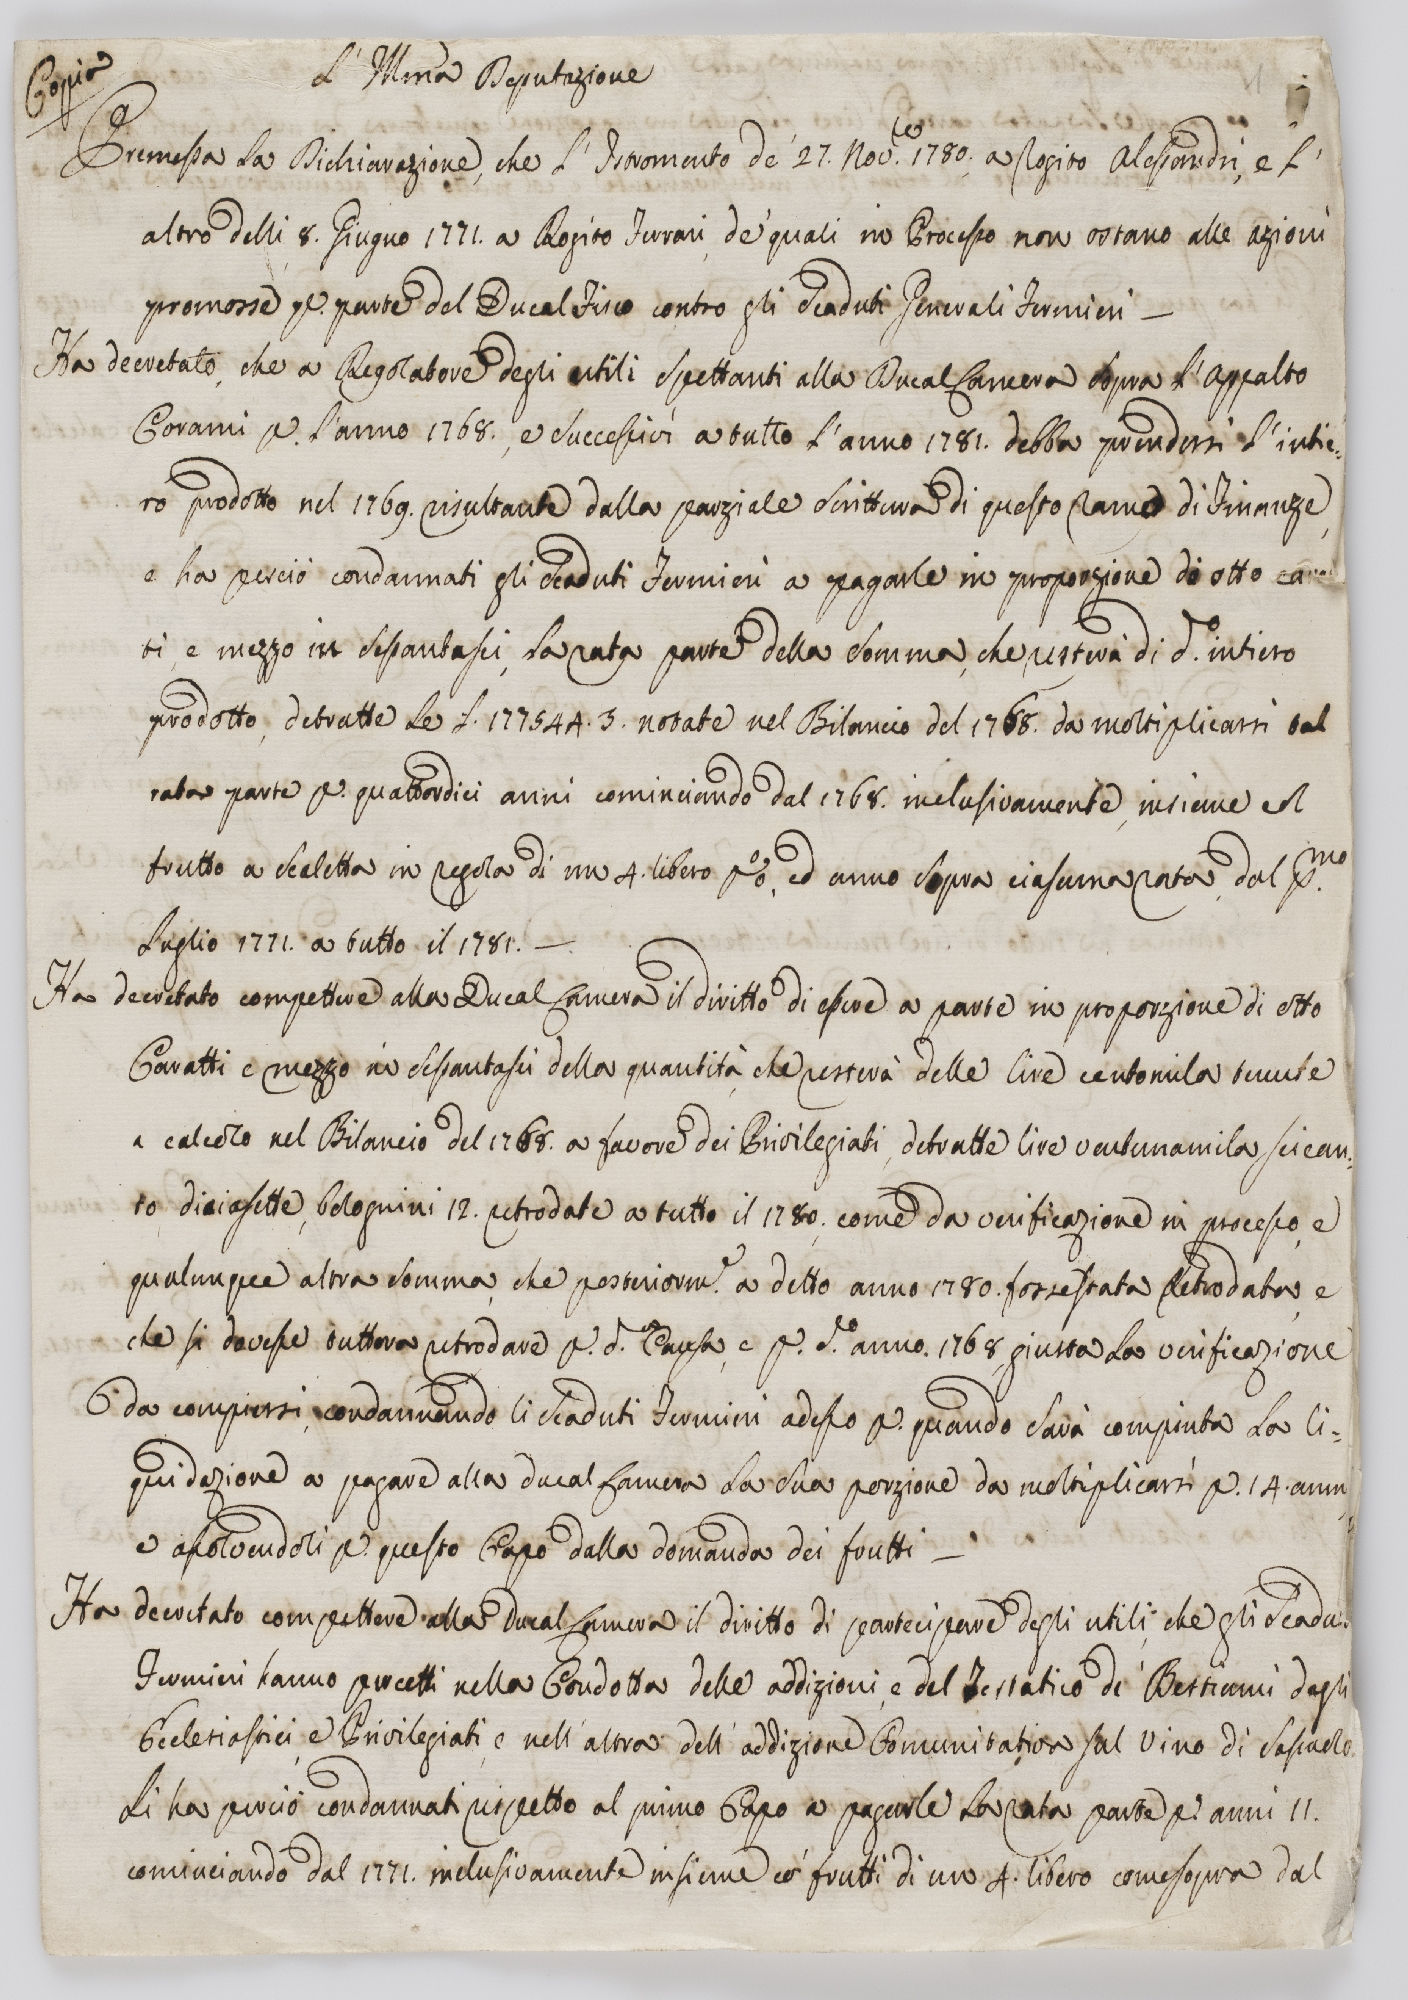 Coppia
L' Illma Deputazione
Premessa La Dichiarazione, che L' Istromento de' 27. Nov.e 1780. a Rogito Alessandri, e L'
altro delli 8. Giugno 1771. a Rogito Ferrari, de' quali in Processo non ostano alle azioni
promosse p. parte del Ducal Fisco contro gli Scaduti Generali Fermieri —
Ha decretato, che a Regolatore degli utili spettanti alla Ducal Camera sopra L'Appalto
Corami p. L'anno 1768., e successivi a tutto L'anno 1781. debba prendersi L'intie=
ro prodotto nel 1769. risultante dalla parziale Scrittura di questo ramo di Finanze,
e ha perciò condannati gli Scaduti Fermieri a pagarle in proporzione di otto cara
ti, e mezzo in Sessantasei, La rata parte della Somma, che resterà di d.o intiero
prodotto, detratte Le L. 177544. 3. notate nel Bilancio del 1768. da moltiplicarsi tal
rata parte p. quattordici anni cominciando dal 1768. inclusivamente, insieme col
frutto a Scaletta in regola di un 4. libero p. o/o, ed anno sopra ciascuna rata, dal p.mo
Luglio 1771. a tutto il 1781. —
Ha decretato competere alla Ducal Camera il diritto di essere a parte in proporzione di otto
Caratti e mezzo in Sessantasei della quantità, che resterà delle lire centomila tenute
a calcolo nel Bilancio del 1768. a favore dei Privilegiati, detratte lire ventunamila seicen=
to diciasette, bolognini 12. retrodate a tutto il 1780., come da verificazione in processo, e
qualunque altra Somma, che posteriorm.e a detto anno 1780. fosse stata Retrodata, e
che si dovesse tuttora retrodare p. d.a Causa, e p. d.o anno. 1768, giusta La verificazione
da compiersi, condannando li Scaduti Fermieri adesso p. quando sarà compiuta La li=
quidazione a pagare alla Ducal Camera La Sua porzione da moltiplicarsi p. 14. anni,
e assolvendoli p. questo Capo dalla domanda dei frutti —
Ha decretato competere alla Ducal Camera il diritto di partecipare degli utili, che gli Scaduti
Fermieri hanno percetti nella Condotta delle addizioni, e del Testatico de' Bestiami degli
Ecclesiastici, e Privilegiati, e nell' altra dell' addizione Comunitativa sul Vino di Sassuolo.
Li ha perciò condannati rispetto al primo Capo a pagarle La rata parte p. anni 11.
cominciando dal 1771. inclusivamente insieme co' frutti di un 4. libero come sopra dal